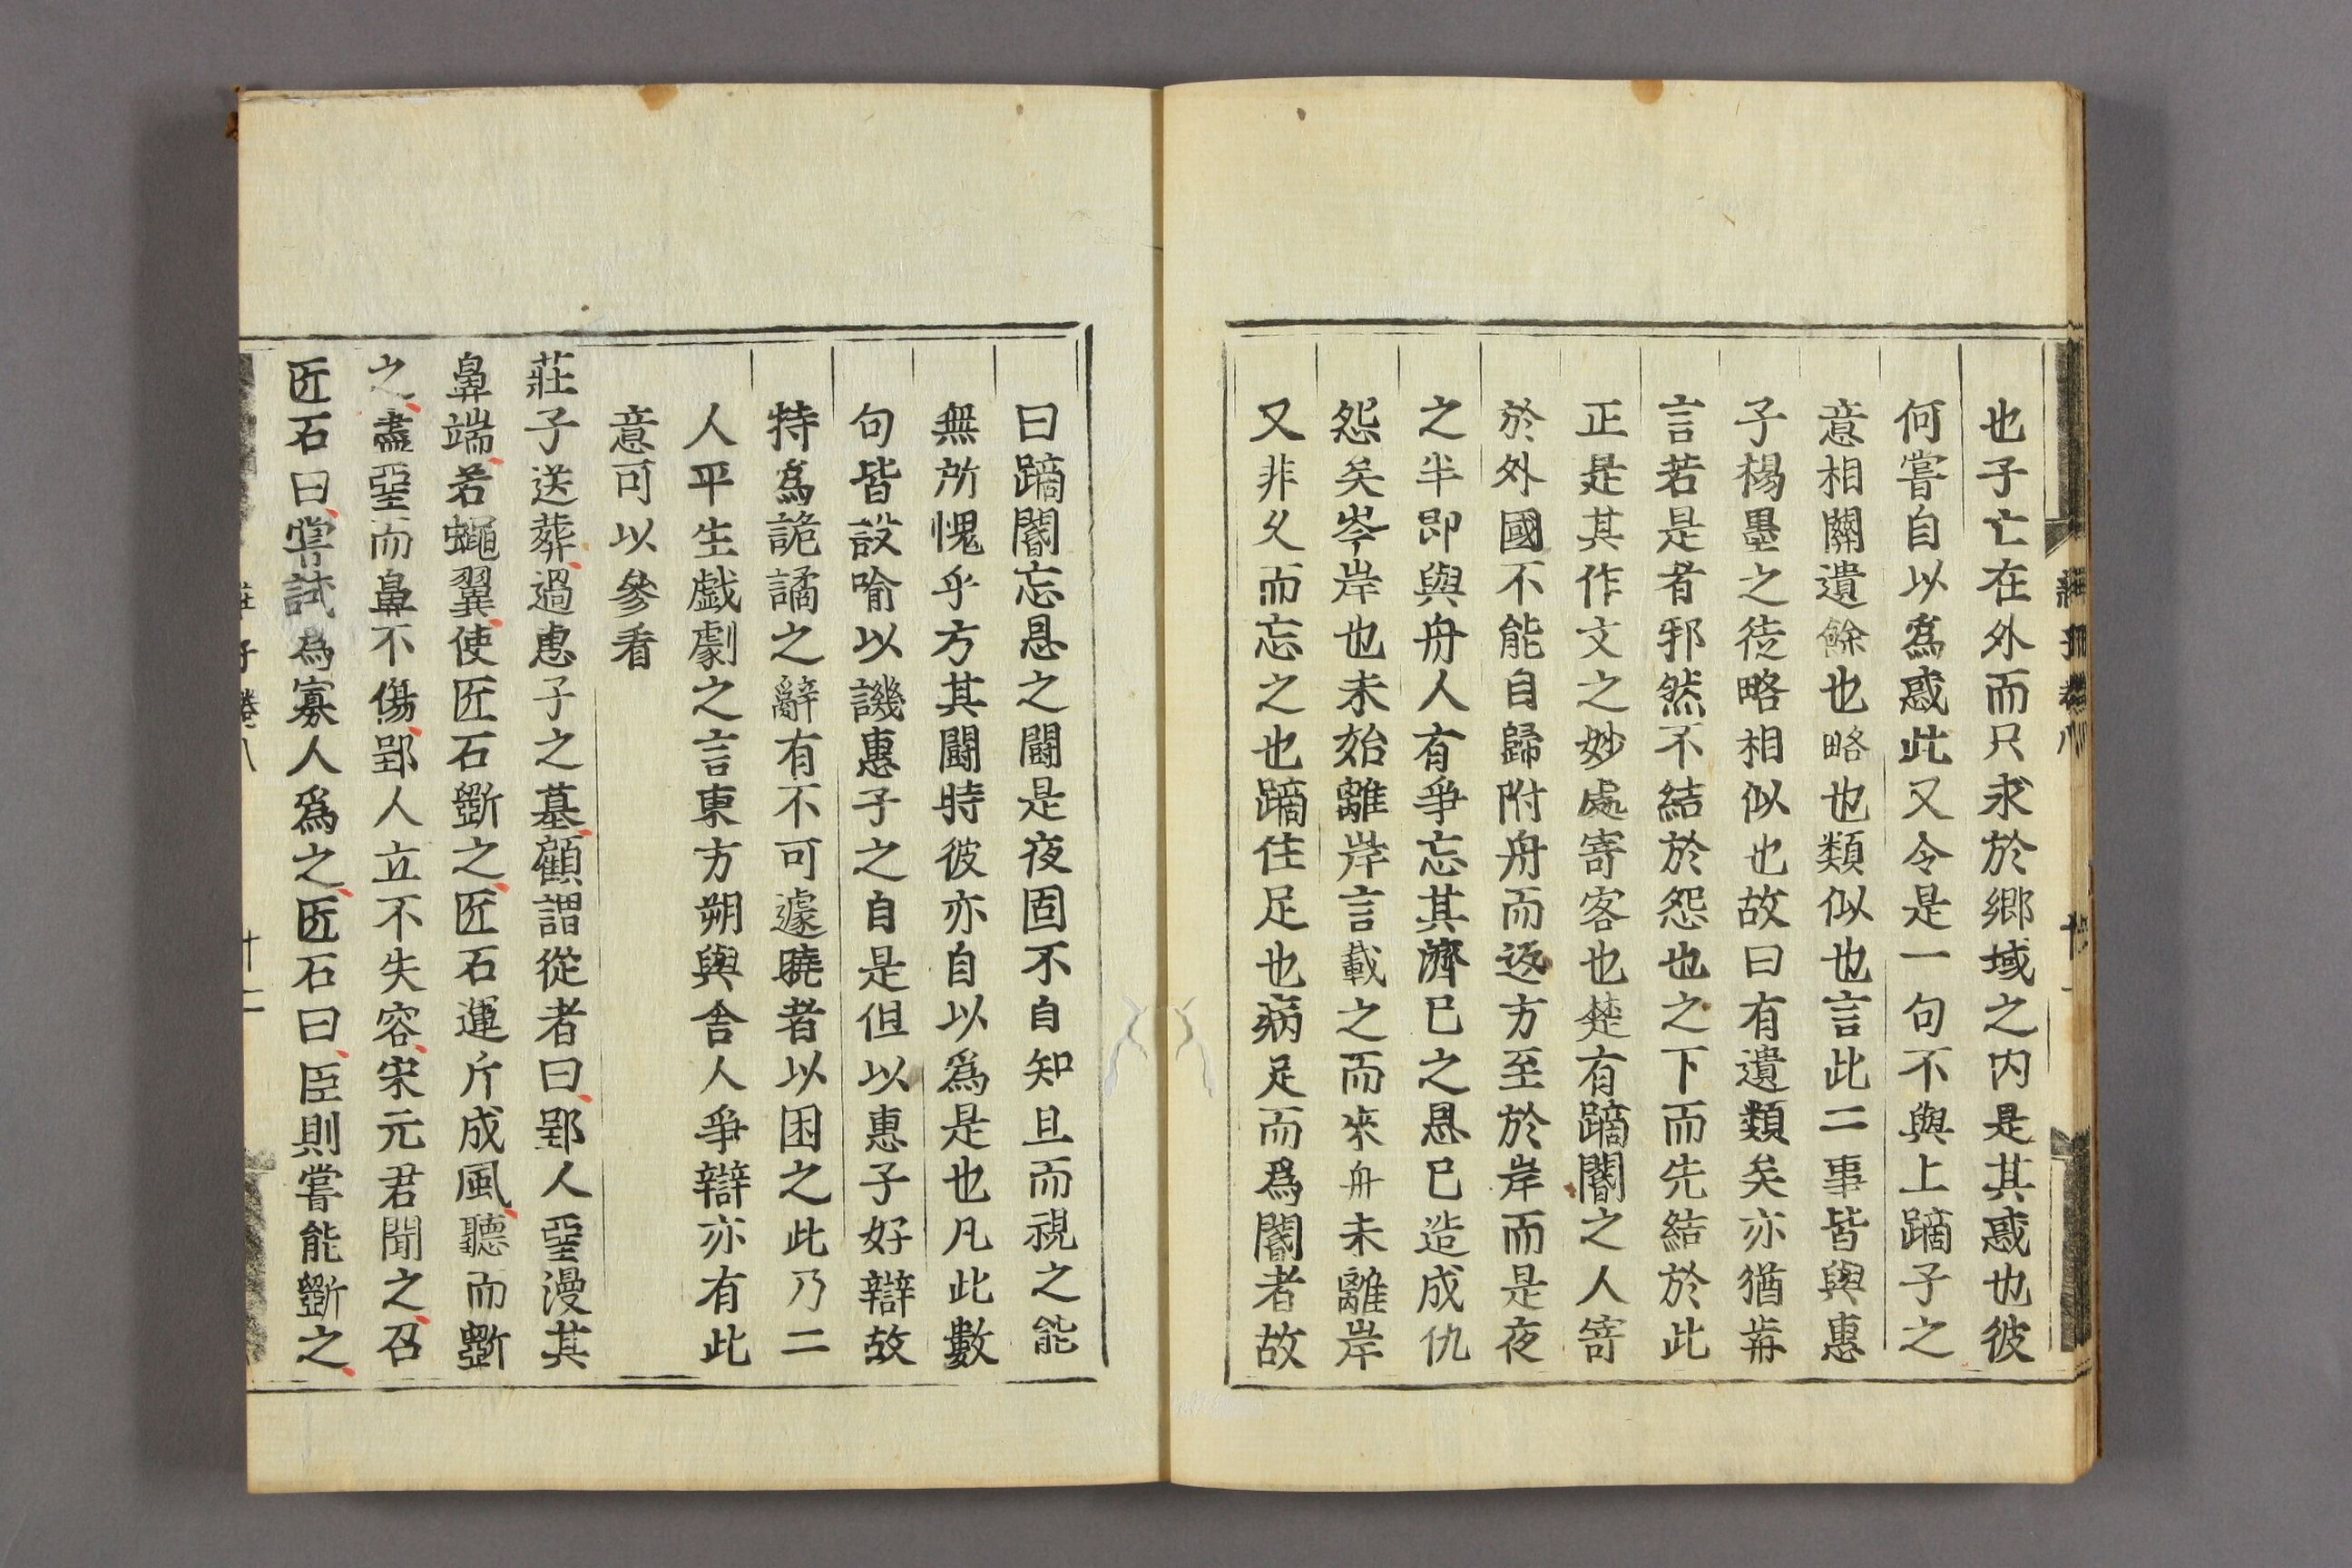 也子亡在外而只求於鄉域之内是其惑也彼
何嘗自以爲惑此又令是一句不與上蹢子之
意相關遺餘也略也類似也言此二事皆與惠
子楊墨之徒略相似也故曰有遺類矣亦猶莾
言若是者邪然不結於怨也之下而先結於此
正是其作文之妙處寄客也楚有蹢閽之人寄
於外國不能自歸附舟而返方至於岸而是夜
之半即與舟人有爭忘其濟已之恩已造成仇
怨矣岑岸也未始離岸言載之而來舟未離岸
又非久而忘之也蹢住足也病足而爲閽者故
曰蹢閽忘恩之鬪是夜固不自知且而視之能
無所愧乎方其鬪時彼亦自以爲是也凡此數
句皆設喻以譏惠子之自是但以惠子好辯故
特爲詭譎之辭有不可遽曉者以困之此乃二
人平生戲劇之言東方朔與舍人爭辯亦有此
意可以參看
莊子送葬過惠子之墓顧謂從者曰郢人堊漫其
鼻端若蠅翼使匠石斵之匠石運斤成風聽而斵
之盡堊而鼻不傷郢人立不失容宋元君聞之召
匠石曰嘗試爲寡人爲之匠石曰臣則嘗能斵之
莊子卷八
十二